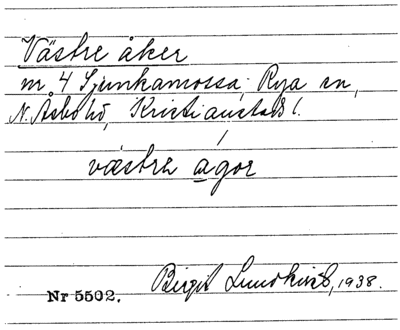 Västre åker
nr 4 Ljunkamossa, Rya sn,
N. Åsbo hd, Kristianstads l.
västre agor
Birgit Lundkvist, 1938.
Nr 5502.